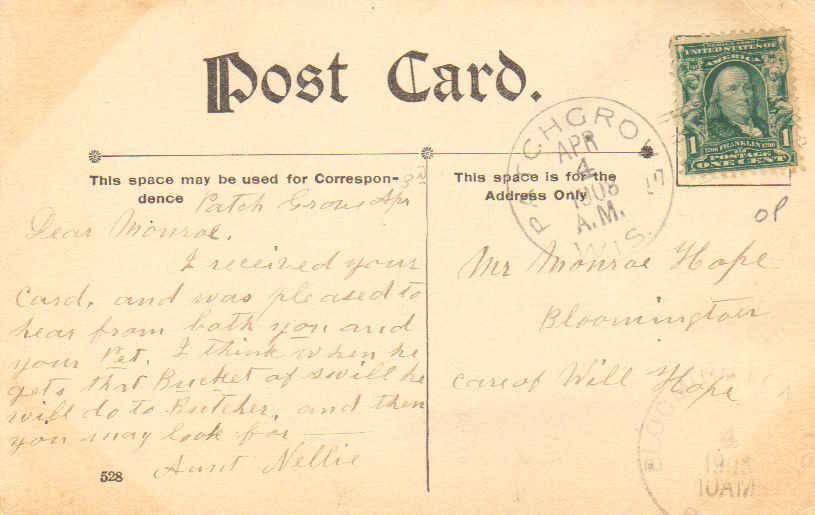 Post Card.
UNITED STATES OF
AMERICA
1 FRANKLIN 1
POSTAGE
ONE CENT
PATCHGROVE
APR
4
1908
A.M.
WIS.
This space may be used for Correspon-
dence
This space is for the
Address Only
Patch Grove Apr 3rd
Dear Monroe.
I received your
Card. and was pleased to
hear from both you and
your Pet. I think when he
gets that Bucket of swill he
will do to Butcher. and then
you may look for —
Aunt Nellie
528
OP
Mr Monroe Hope
Bloomington
care of Will Hope
4
1908
10AM